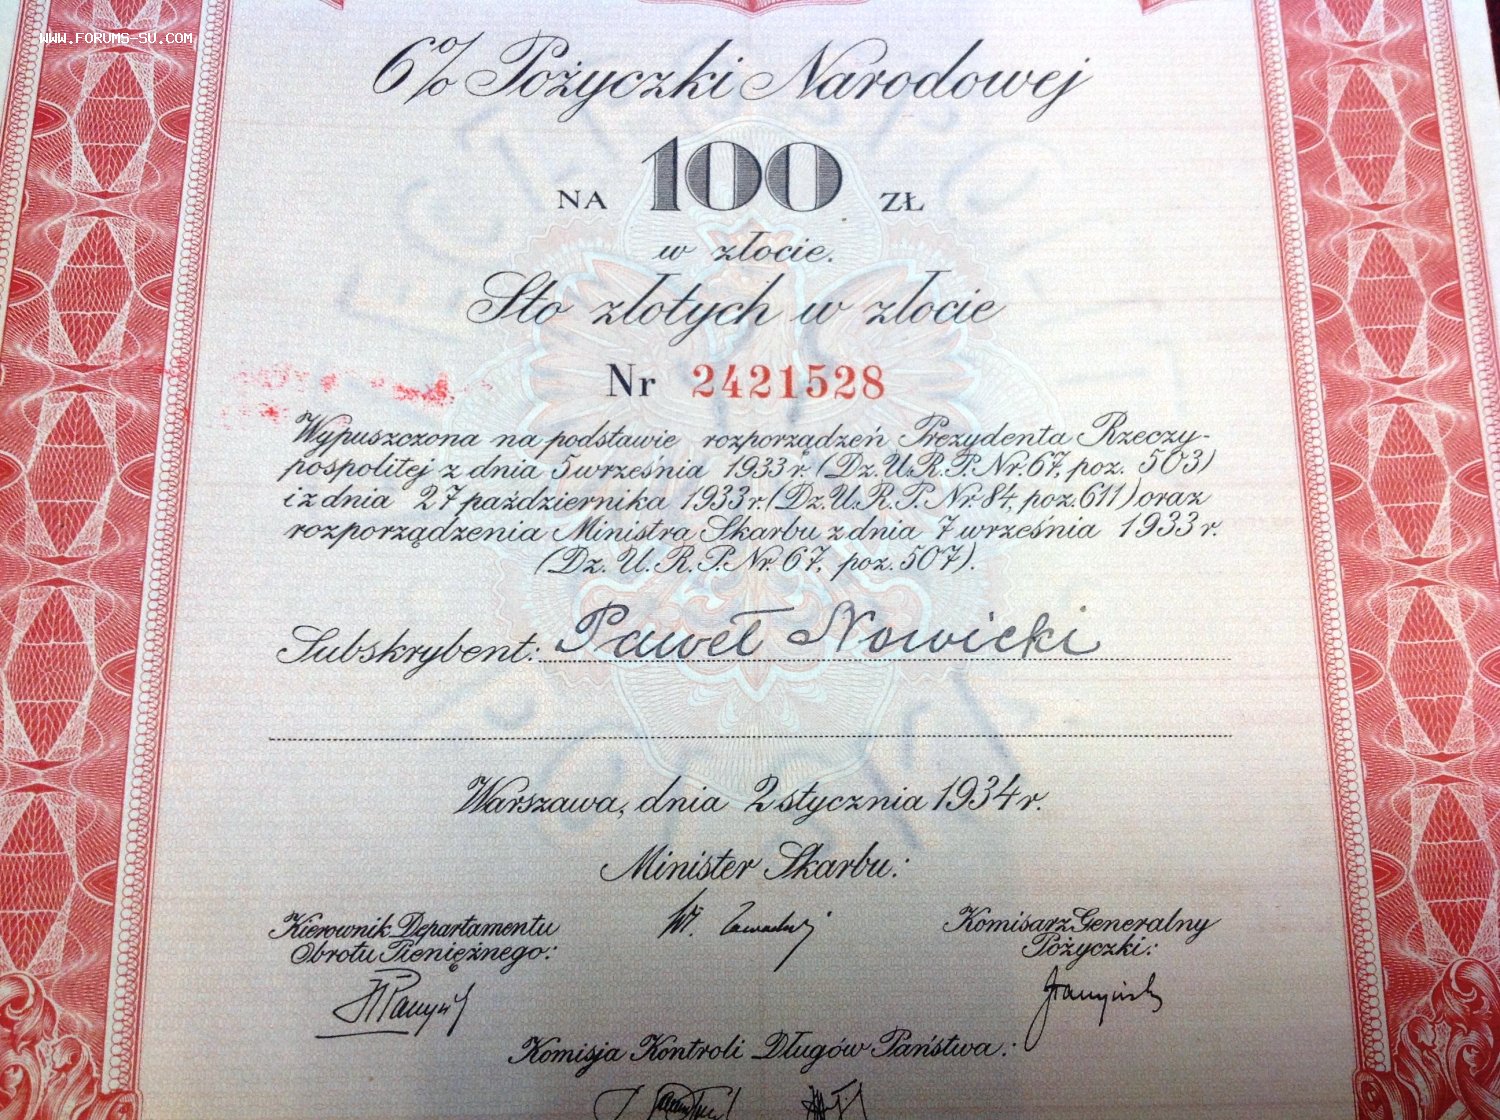 WWW.FORUMS-SU.COM
6% Pożyczki Narodowej
NA 100 ZŁ
w złocie.
Sto złotych w złocie
Nr 2421528
Wypuszczona na podstawie rozporządzeń Prezydenta Rzeczy-
pospolitej z dnia 5 września 1933 r. (Dz. U. R. P. Nr. 67, poz. 503)
i z dnia 27 października 1933 r. (Dz. U. R. P. Nr. 84, poz. 611) oraz
rozporządzenia Ministra Skarbu z dnia 7 września 1933 r.
(Dz. U. R. P. Nr. 67, poz. 507).
Subskrybent: Paweł Nowicki
Warszawa, dnia 2 stycznia 1934 r.
Minister Skarbu:
Kierownik Departamentu
Obrotu Pieniężnego:
Komisarz Generalny
Pożyczki:
Komisja Kontroli Długów Państwa: